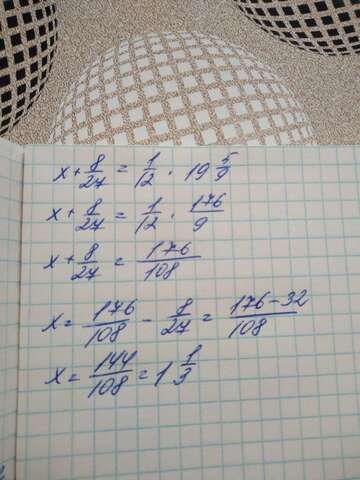 x + 8/27 = 1/12 · 19 5/9
x + 8/27 = 1/12 · 176/9
x + 8/27 = 176/108
x = 176/108 - 8/27 = 176-32/108
x = 144/108 = 1 1/3